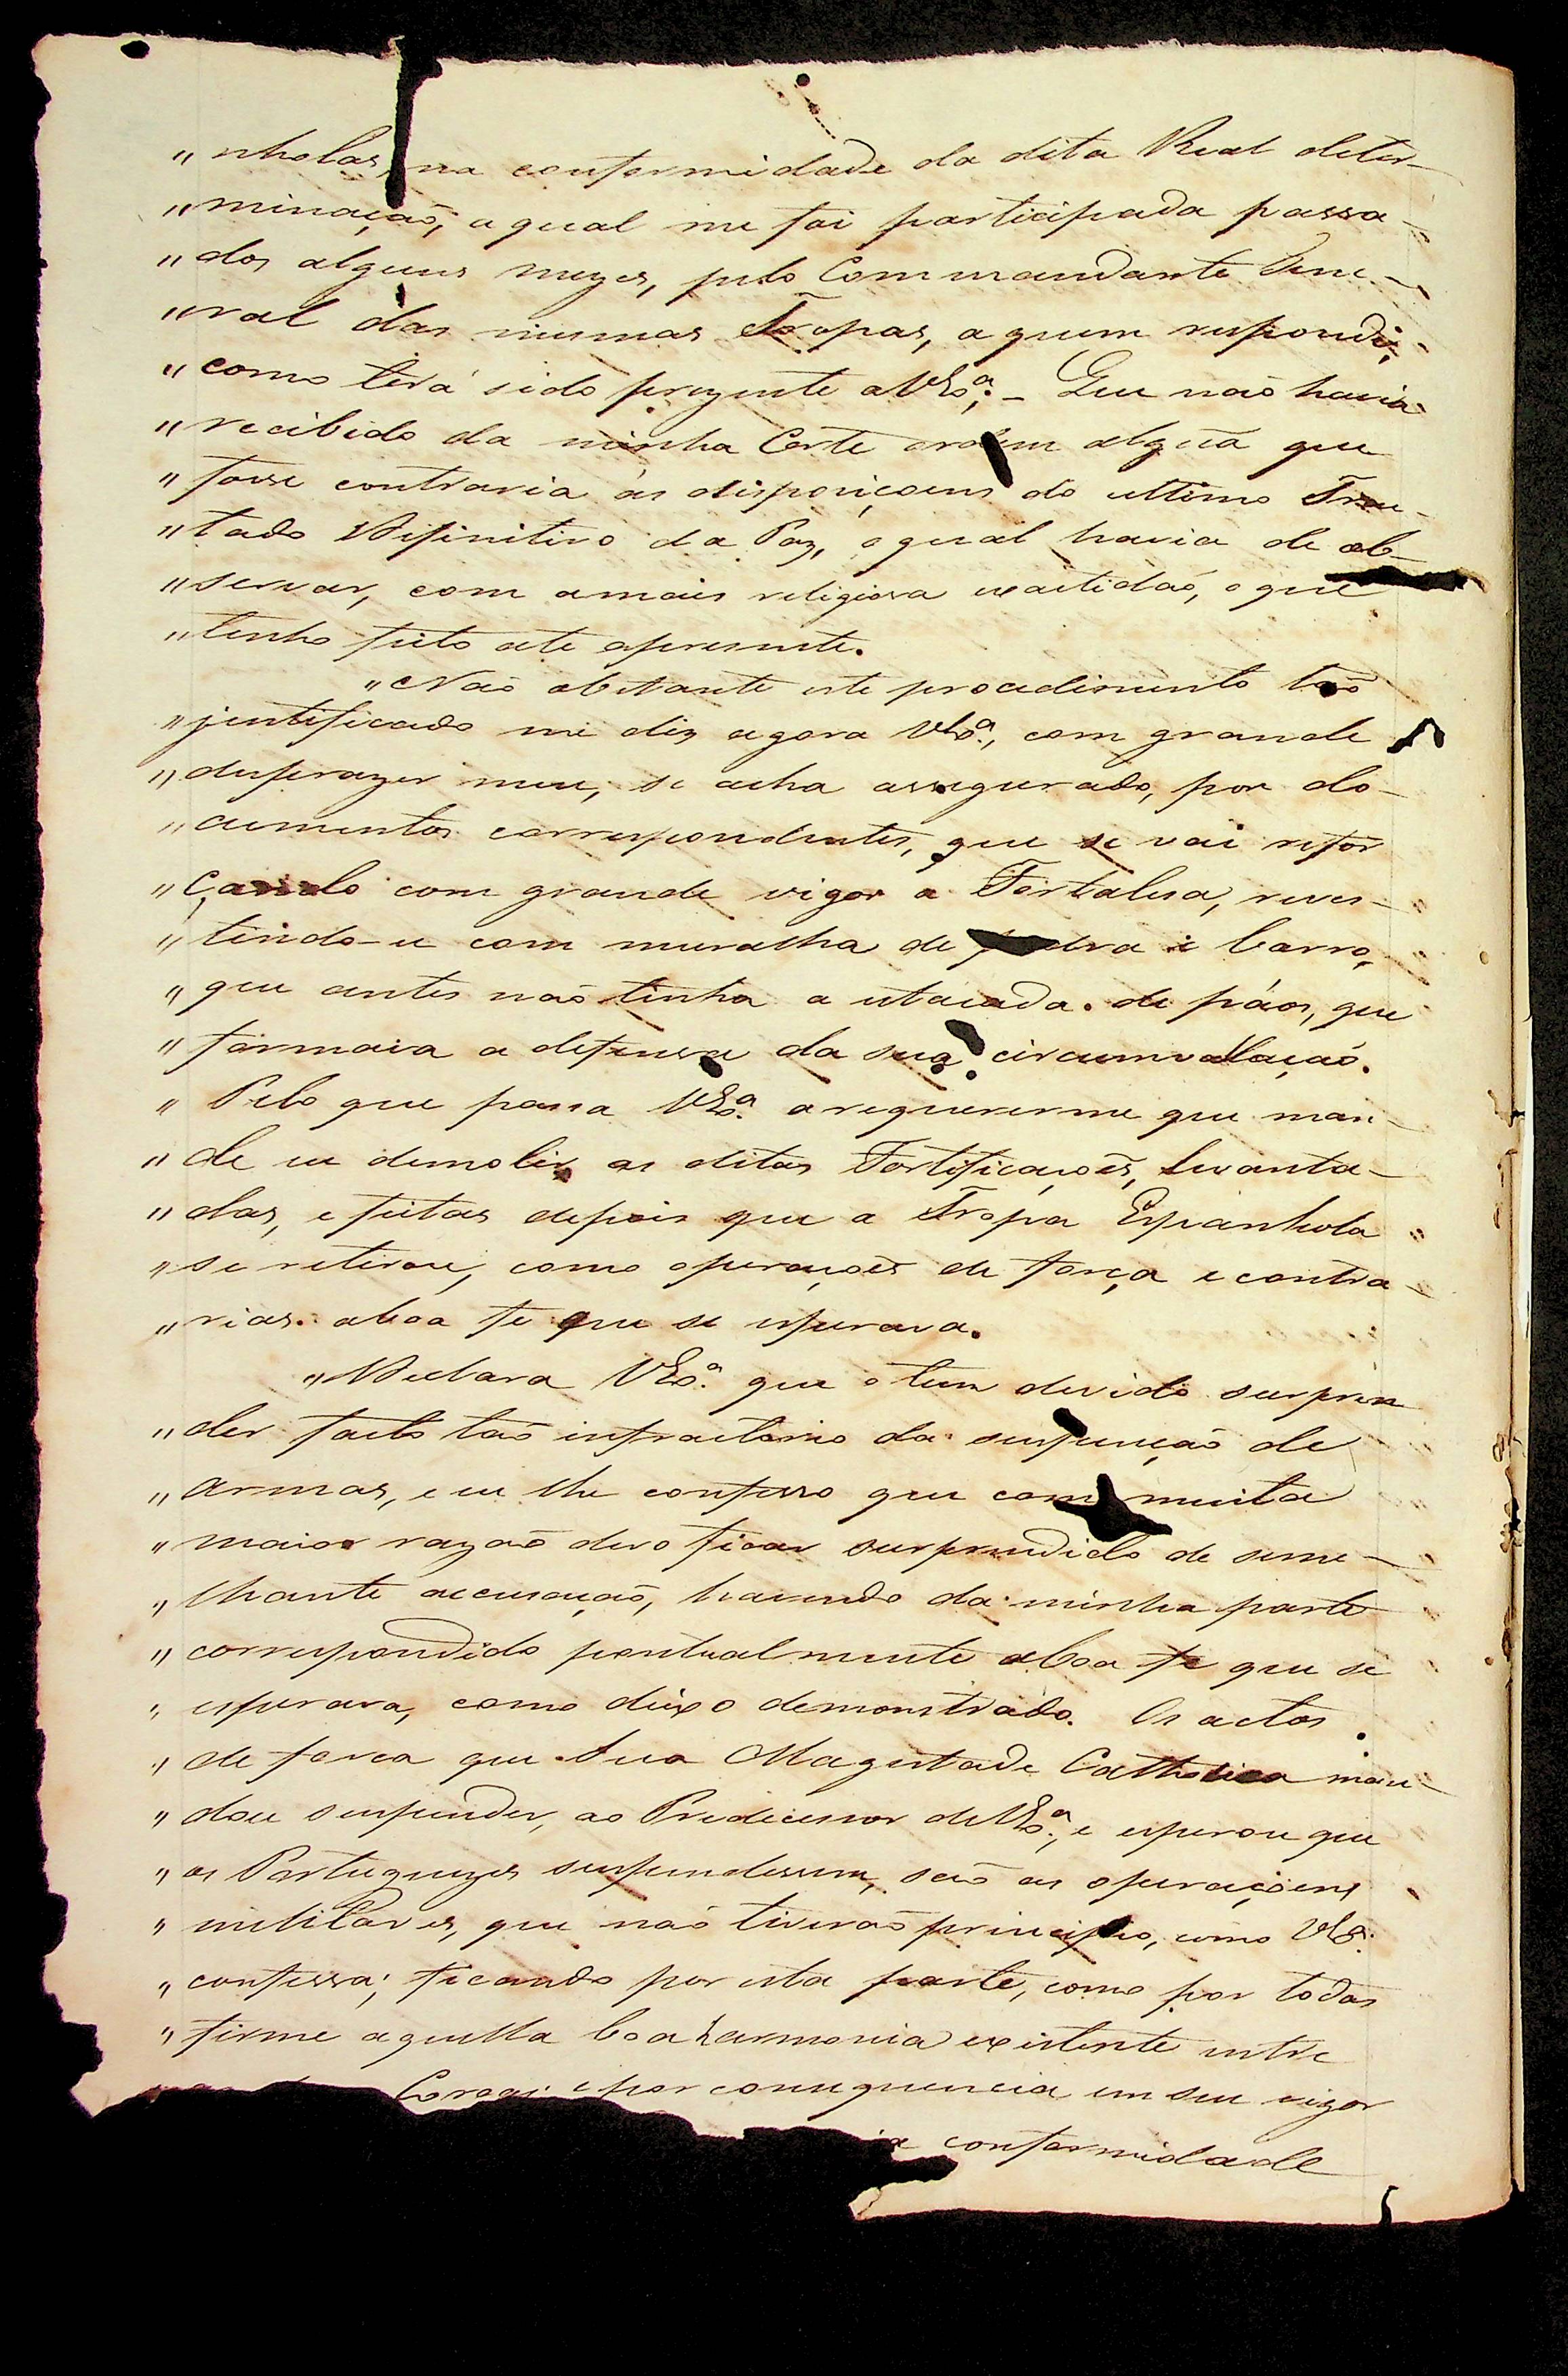 „ nholas, na conformidade da dita Real deter-
„ minação, a qual me foi participada passa-
„ dos alguns mezes, pelo Commandante Gene-
„ ral das mesmas Tropas, a quem respondi,
„ como terá sido prezente a VExª; - Que não havia
„ recibido da minha Corte ordem algũa que
„ fosse contraria ás dispoziçoens do ultimo Tra-
„ tado Difinitivo da Paz, o qual havia de ob-
„ servar, com amais religiosa exactidão, o que
„ tenho feito ate aprezente.
„ Não obstante este procedimento tão
„ justificado me diz agora VExª, com grande
„ desprazer meu, se acha assegurado, por do-
„ cumentos correspondentes, que se vai refor
„ çando com grande vigor a Fortalesa, reves-
„ tindo-se com muralha de pedra e barro,
„ que antes não tinha a estacada. de páos, que
„ formava a defensa da sua circumvallação.
„ Pelo que passa VExª a requererme que man-
„ de eu demolir as ditas Fortificações, levanta-
„ das, e feitas depois que a Tropa Espanhola
„ se retirou, como operações de força e contra-
„ rias. aboa fe que se esperava.
„ Declara VExª que o tem devido surpren
„ der facto tão infractorio da suspenção de
„ armas, e eu lhe confesso que com muita
„ maior razão devo ficar surprendido de seme-
„ lhante accusação, havendo da minha parte
„ correspondido pontualmente aboa fe que se
„ esperava, como deixo demonstrado. Os actos
„ de forca que Sua Magestade Catholica man-
„ dou suspender, ao Predecessor deVExª, e esperou que
„ os Portuguezes suspendessem, são as operaçoens
„ militares, que não tiverão principio, como VExª
„ confessa; ficando por esta parte, como por todas
„ firme aquella boa harmonia existente entre
Coroas; e por consequencia em seu vigor
conformidade